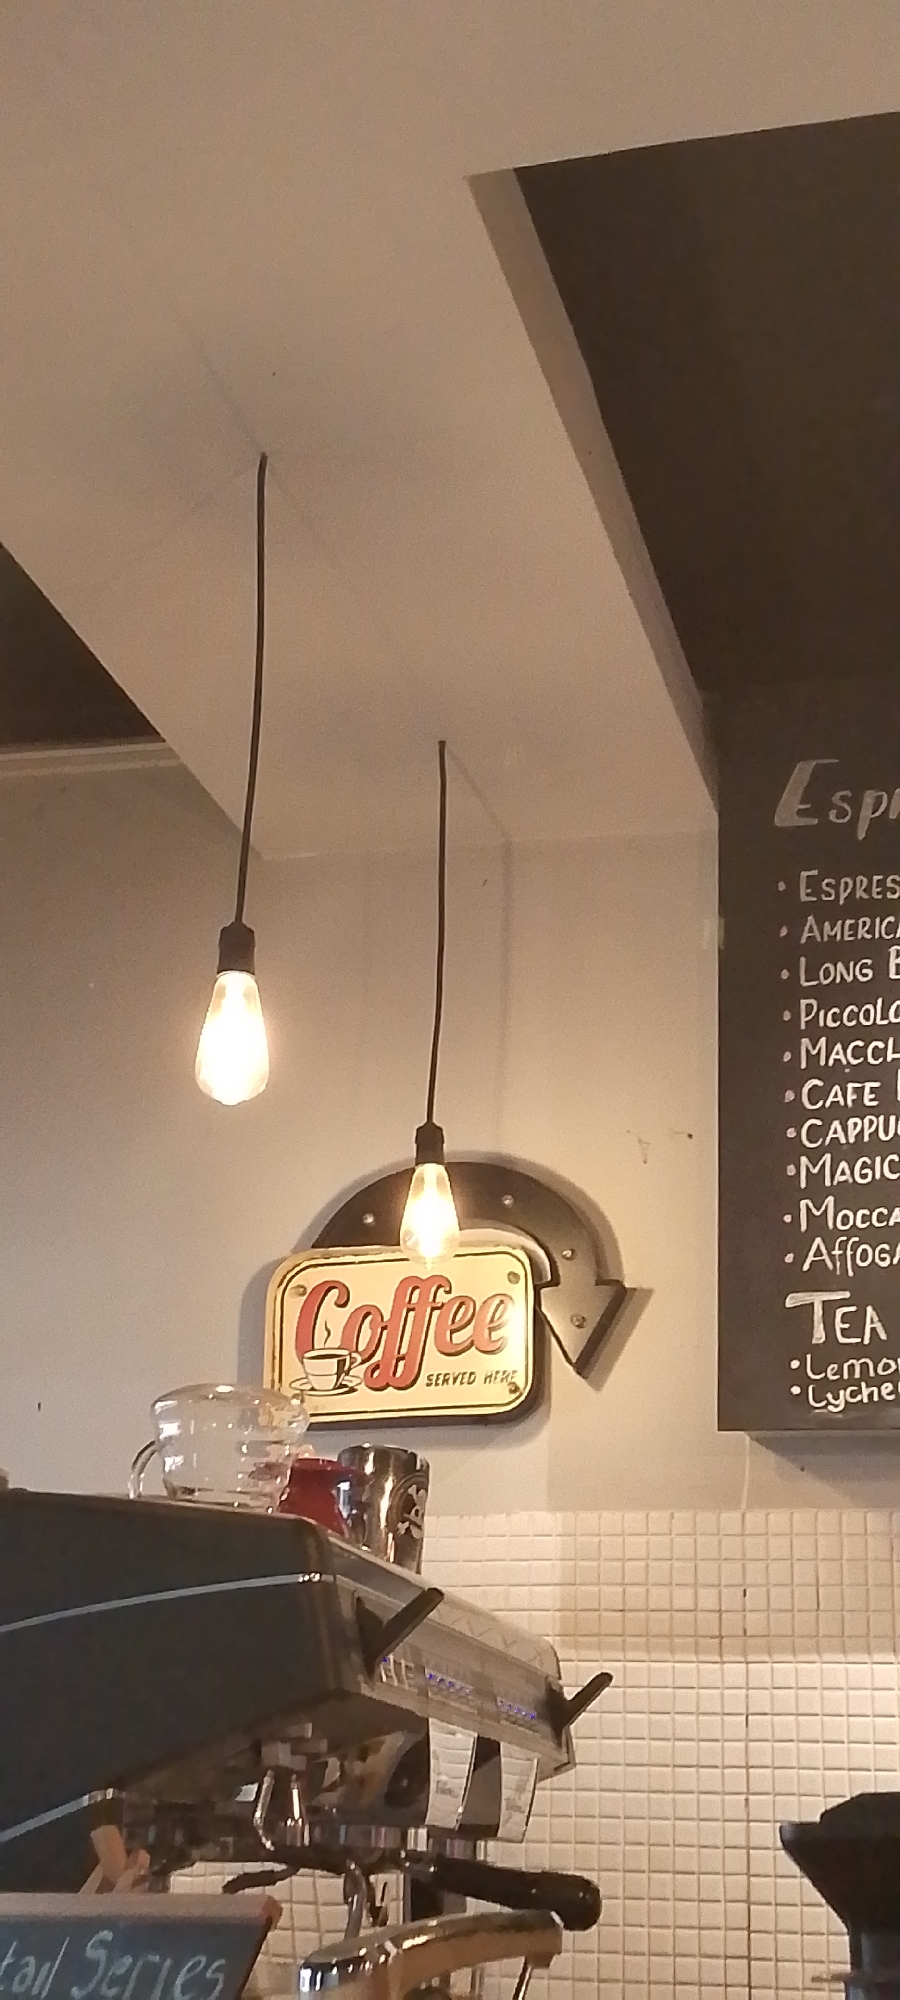 Espr
• ESPRES
• AMERICA
• LONG B
• PICCOLO
• MACCL
• CAFE
• CAPPUC
• MAGIC
• MOCCA
• AffOGA
TEA
• Lemon
• Lyche
Coffee
SERVED HERE
tail Series